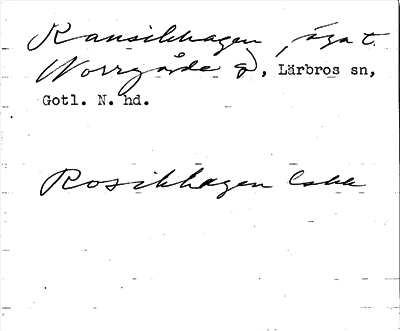 Ransikhagen, äga t.
Norrgårde gd, Lärbros sn,
Gotl. N. hd.
Rosikhagen Ca